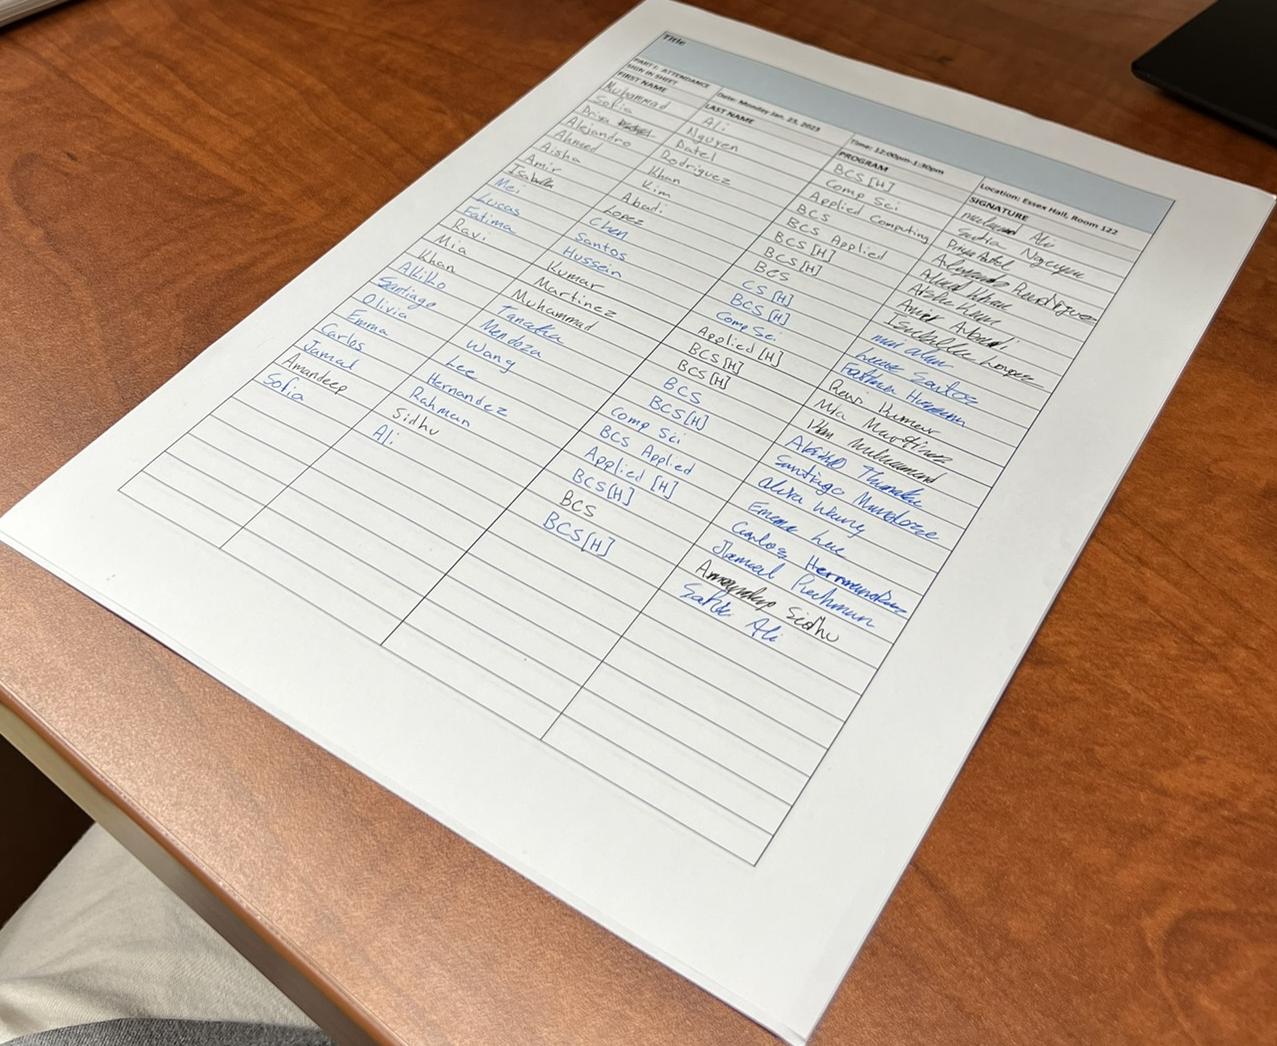 Title
PART I: ATTENDANCE SIGN IN SHEET Date: Monday Jan. 23, 2023 Time: 12:00pm-1:30pm Location: Essex Hall, Room 122
FIRST NAME LAST NAME PROGRAM SIGNATURE
Muhammad Ali BCS [H] Ali
Sofia Nguyen Comp Sci Sofia Nguyen
Priya Patel Applied Computing Priya Patel
Alejandro Rodriguez BCS Rodriguez
Ahmed Khan BCS Applied Ahmed Khan
Aisha Kim BCS [H] Aisha
Amir Abadi BCS [H] Amir Abadi
Isabella Lopez BCS Isabella Lopez
Mei Chen CS [H] mei chen
Lucas Santos BCS [H] Lucas Santos
Fatima Hussein Comp Sci. Fatima Hussein
Ravi Kumar Applied [H] Ravi Kumar
Mia Martinez BCS [H] Mia Martinez
Khan Muhammad BCS [H] Khan Muhammad
Akiko Tanaka BCS Akiko Tanaka
Santiago Mendoza BCS[H] Santiago Mendoza
Olivia Wang Comp Sci olivia Wang
Emma Lee BCS Applied Emma Lee
Carlos Hernandez Applied [H] Carlos Hernandez
Jamal Rahman BCS[H] Jamal Rahman
Amandeep Sidhu BCS Amandeep Sidhu
Sofia Ali BCS[H] Sofia Ali